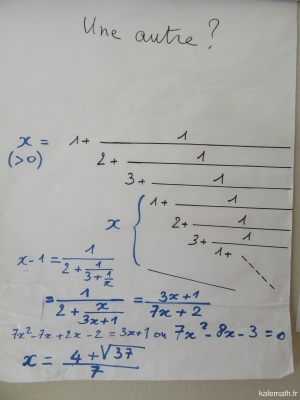 Une autre ?
x = 1 + 1
(>0)
2 + 1
3 + 1
x { 1 + 1
2 + 1
3 + 1
1 +
x - 1 = 1 / (2 + 1 / (3 + 1/x))
= 1 / (2 + x / (3x + 1)) = (3x + 1) / (7x + 2)
7x² - 7x + 2x - 2 = 3x + 1 ou 7x² - 8x - 3 = 0
x = (4 + √37) / 7
kafemath.fr